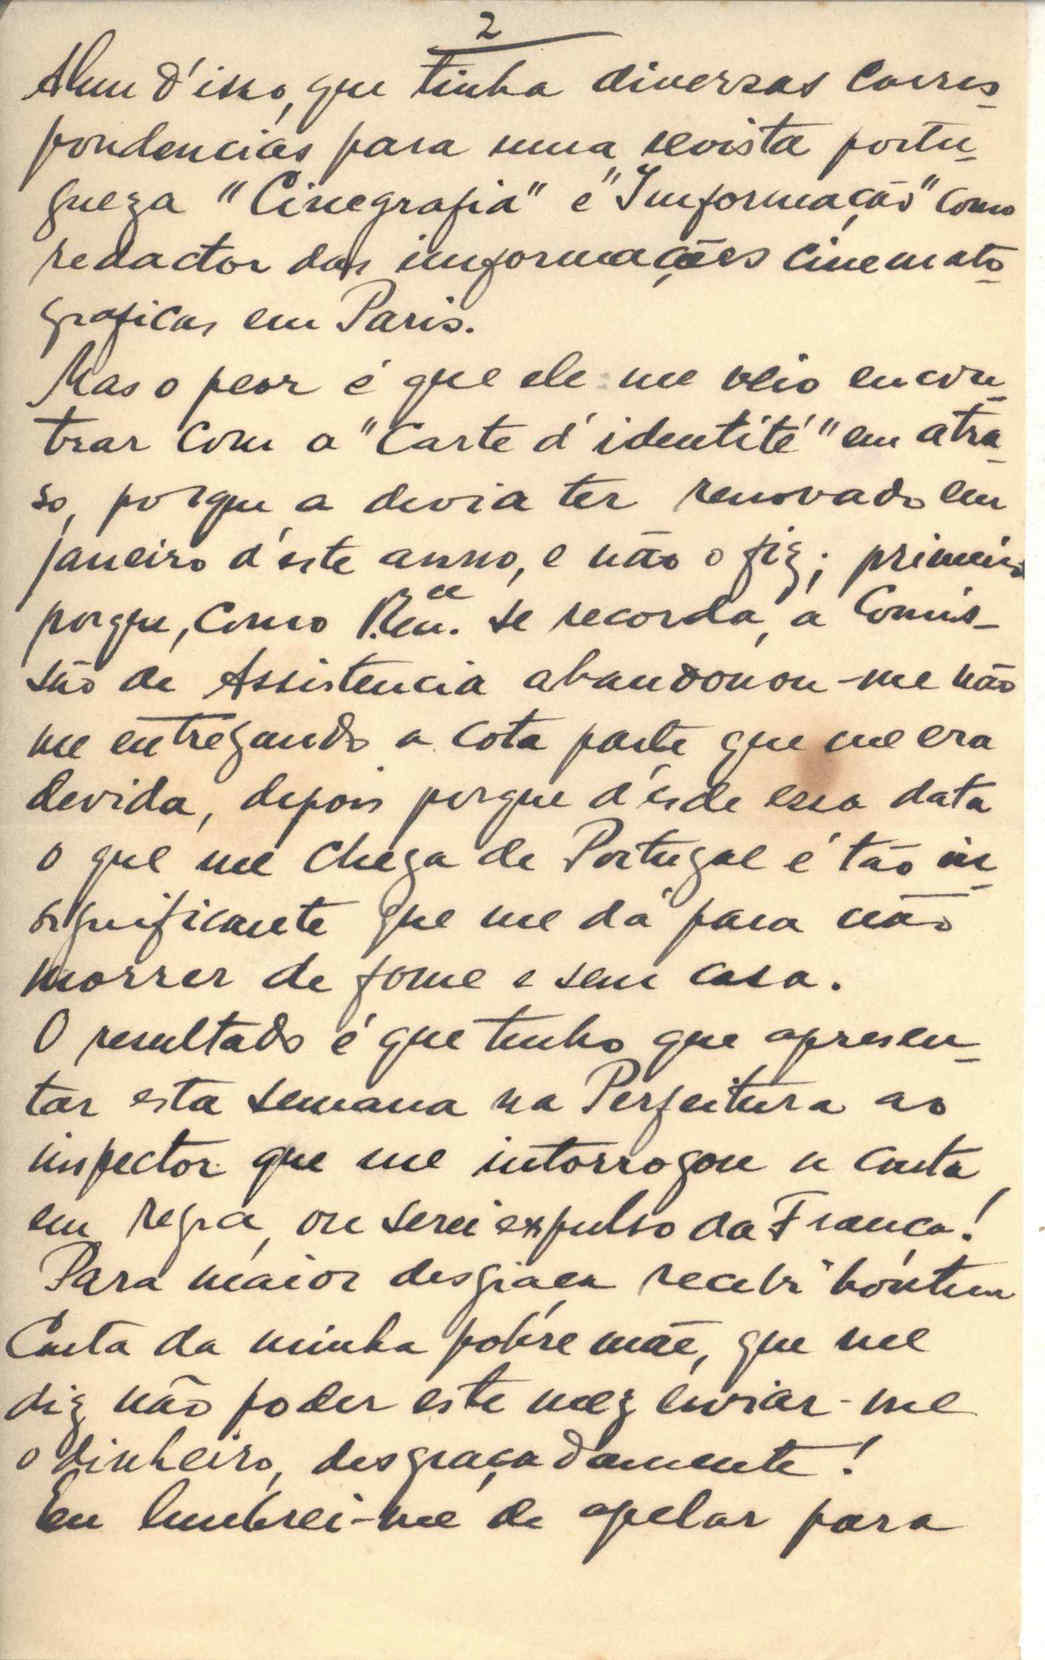 2
Alem d'isso, que tinha diversas corres-
pondencias para uma revista portu-
gueza "Cinegrafia" e "Imformação" como
redactor das imformações cinemato-
graficas em Paris.
Mas o peor é que ele me veio encon-
trar com a "Carte d'identité" em atra-
so, porque a devia ter renovado em
janeiro d'este anno, e não o fiz; primeiro
porque, como se recorda, a Comis-
são de Assistencia abandonou-me não
me entregando a cota parte que me era
devida, depois porque d'ésde essa data
o que me chega de Portugal é tão in-
significante que me dá para não
morrer de fome e sem casa.
O resultado é que tenho que apresen-
tar esta semana na Perfeitura ao
inspector que me intorrogou a carta
em regra, ou serei expulso da França!
Para maior desgraça recebi hontem
Carta da minha pobre mãe, que me
diz não poder este mez enviar-me
o dinheiro, desgraçadamente!
Eu lembrei-me de apelar para